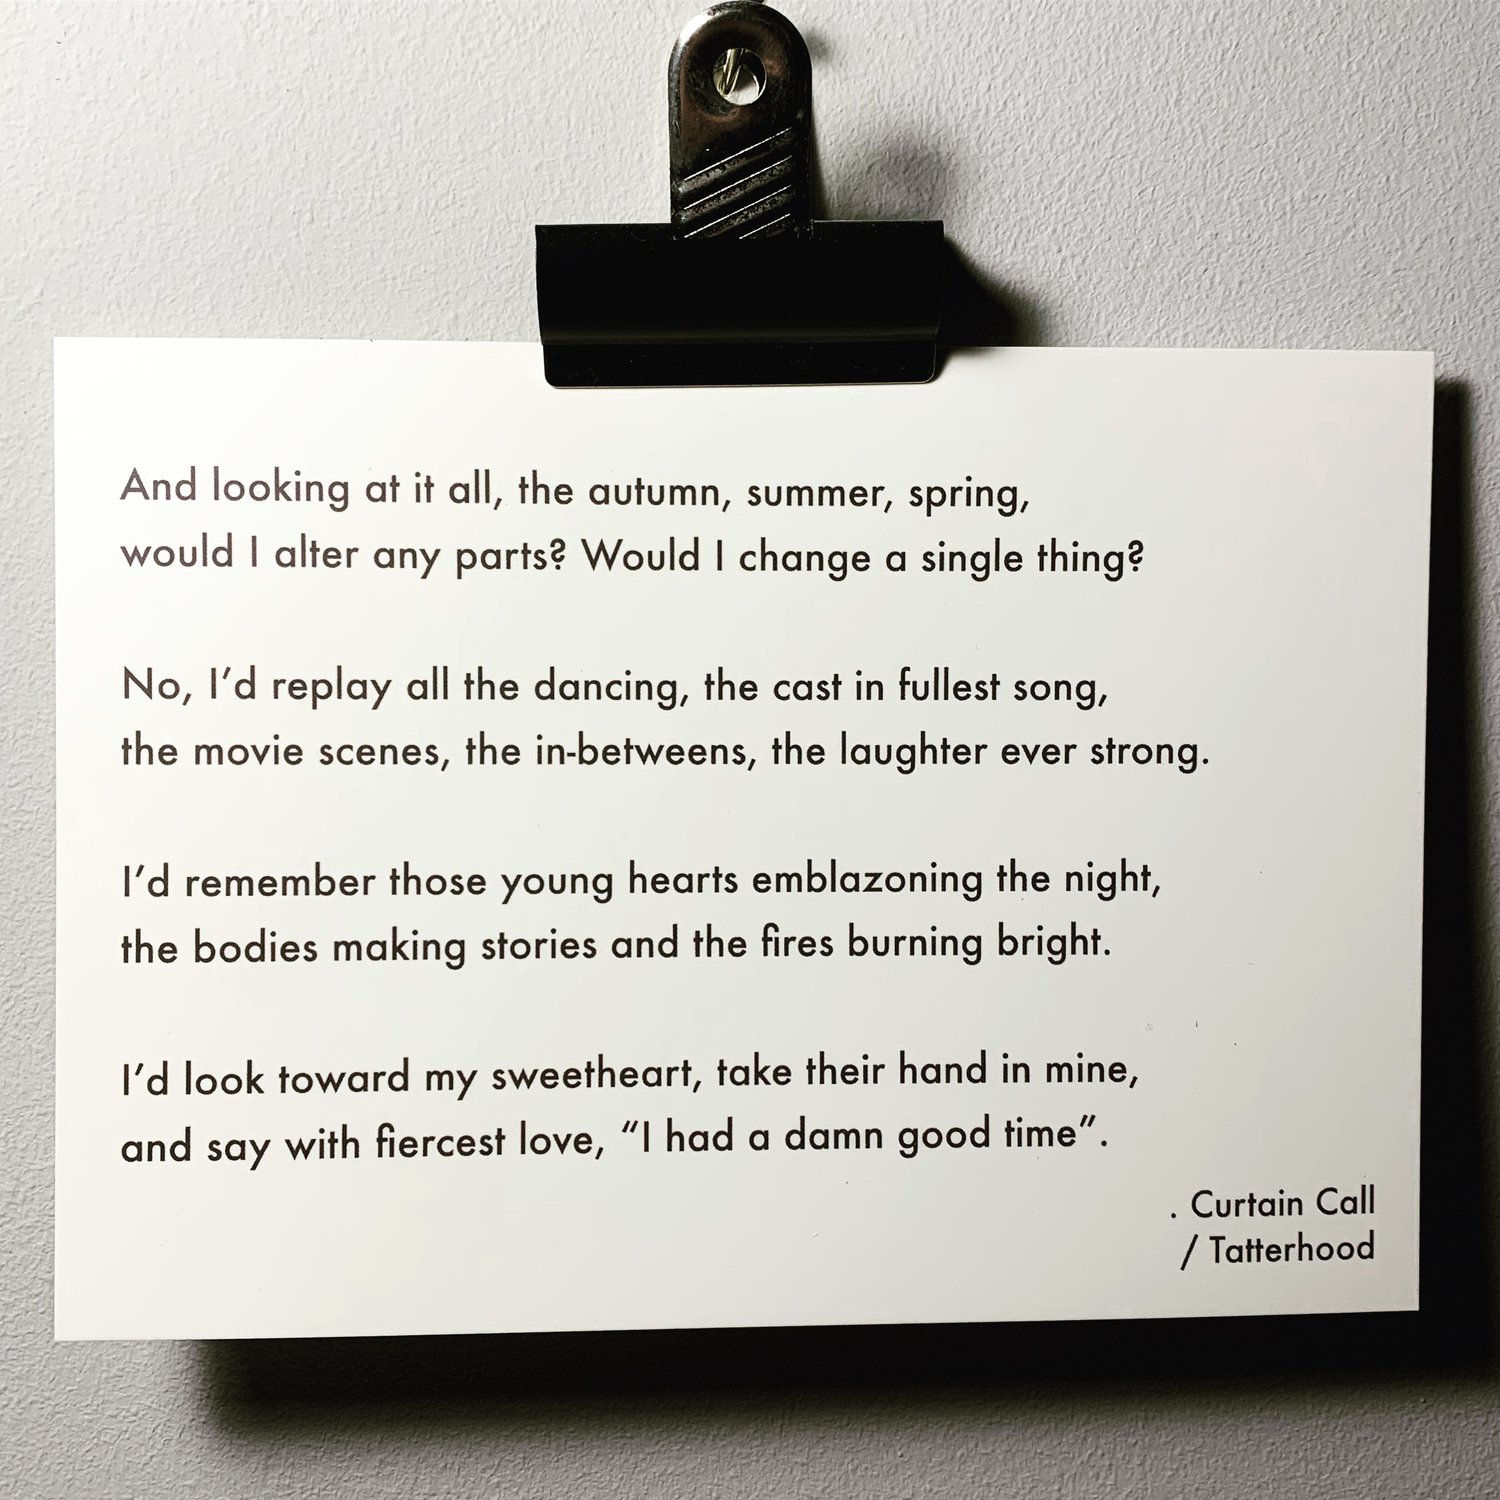 And looking at it all, the autumn, summer, spring,
would I alter any parts? Would I change a single thing?
No, I’d replay all the dancing, the cast in fullest song,
the movie scenes, the in-betweens, the laughter ever strong.
I’d remember those young hearts emblazoning the night,
the bodies making stories and the fires burning bright.
I’d look toward my sweetheart, take their hand in mine,
and say with fiercest love, “I had a damn good time”.
. Curtain Call
/ Tatterhood